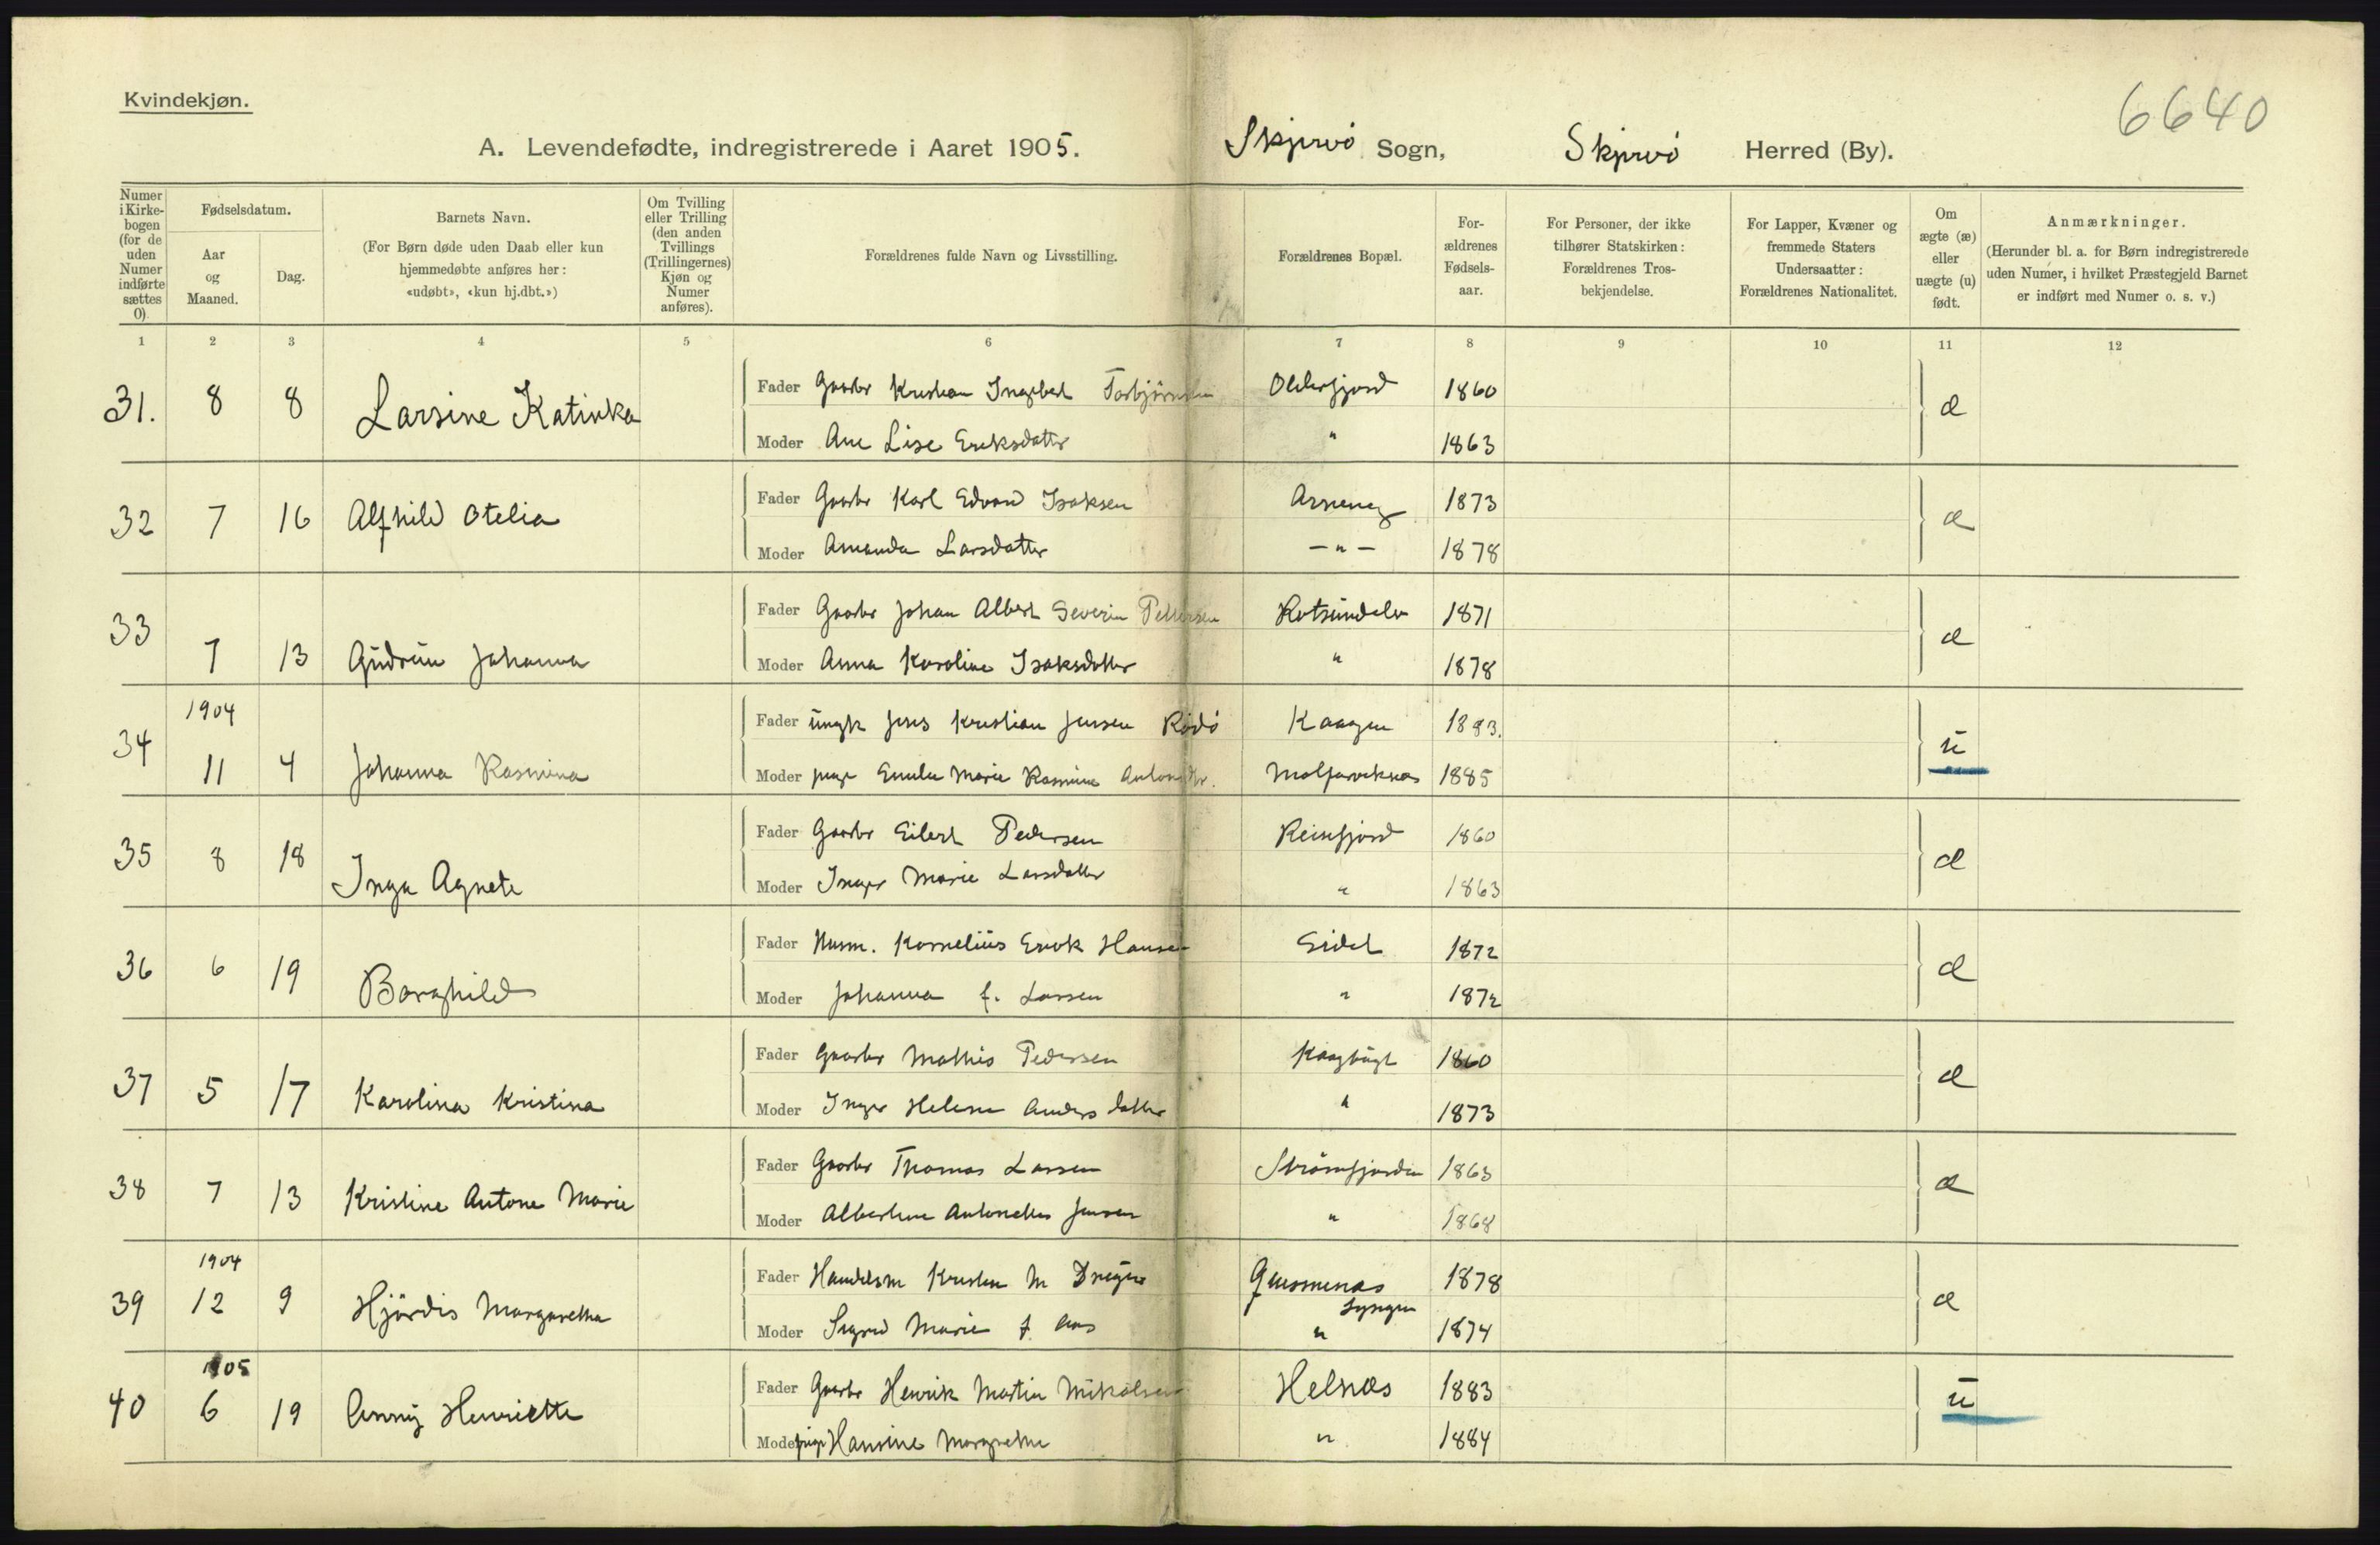 Kvindekjøn.
6640
A. Levendefødte, indregistrerede i Aaret 1905. Skjervö Sogn, Skjervö Herred (By).
Numer i Kirkebogen (for de uden Numer indførte sættes 0).
Fødselsdatum.
Aar og Maaned.
Dag.
Barnets Navn.
(For Børn døde uden Daab eller kun
hjemmedøbte anføres her:
«udøbt», «kun hj.dbt.»)
Om Tvilling eller Trilling (den anden Tvillings (Trillingernes) Kjøn og Numer anføres).
Forældrenes fulde Navn og Livsstilling.
Forældrenes Bopæl.
Forældrenes Fødselsaar.
For Personer, der ikke
tilhører Statskirken:
Forældrenes Trosbekjendelse.
For Lapper, Kvæner og
fremmede Staters
Undersaatter:
Forældrenes Nationalitet.
Om ægte (æ) eller uægte (u) født.
Anmærkninger.
(Herunder bl. a. for Børn indregistrerede
uden Numer, i hvilket Præstegjeld Barnet
er indført med Numer o. s. v.)
1 2 3 4 5 6 7 8 9 10 11 12
31. 8 8 Larsine Katinka
Fader Gaarbr Kristian Ingebert Torbjörnsen Olderfjord 1860 æ
Moder Ane Lise Eriksdatter " 1863
32 7 16 Alfhild Otelia
Fader Gaarbr Karl Edvard Isaksen 1873 æ
Moder Amanda Larsdatter – " – 1878
33 7 13 Gudrun Johanna
Fader Gaarbr Johan Albert Severin Pettersen Rotsundelv 1871 æ
Moder Anna Karoline Isaksdatter " 1878
1904
34 11 4 Johanna Rasmina
Fader ungk Jens Kristian Jensen Rödö Kaagen 1883. u
Moder pige Emilie Marie Rasmine 1885
35 8 18 Inga Agnete
Fader Gaarbr Eilert Pedersen Reisefjord 1860 æ
Moder Inger Marie Larsdatter " 1863
36 6 19 Borghild
Fader Husm. Kornelius Erik Hansen Eidet 1872 æ
Moder Johanna f. Larsen " 1872
37 5 17 Karolina Kristina
Fader Gaarbr Mathis Pedersen Kaagbugt 1860 æ
Moder Inger Helene Andersdatter " 1873
38 7 13 Kristine Antone Marie
Fader Gaarbr Thomas Larsen Strömfjorden 1863 æ
Moder Albertine Antonette Jensen " 1868
1904
39 12 9 Hjördis Margaretha
Fader Handelsm Kristen M 1878 æ
Lyngen
Moder Sigrid Marie f. Aas " 1874
1905
40 6 19 Anny Henriette
Fader Gaarbr Henrik Martin Mikalsen Helnæs 1883 u
Moder pige Hansine Margrethe " 1884